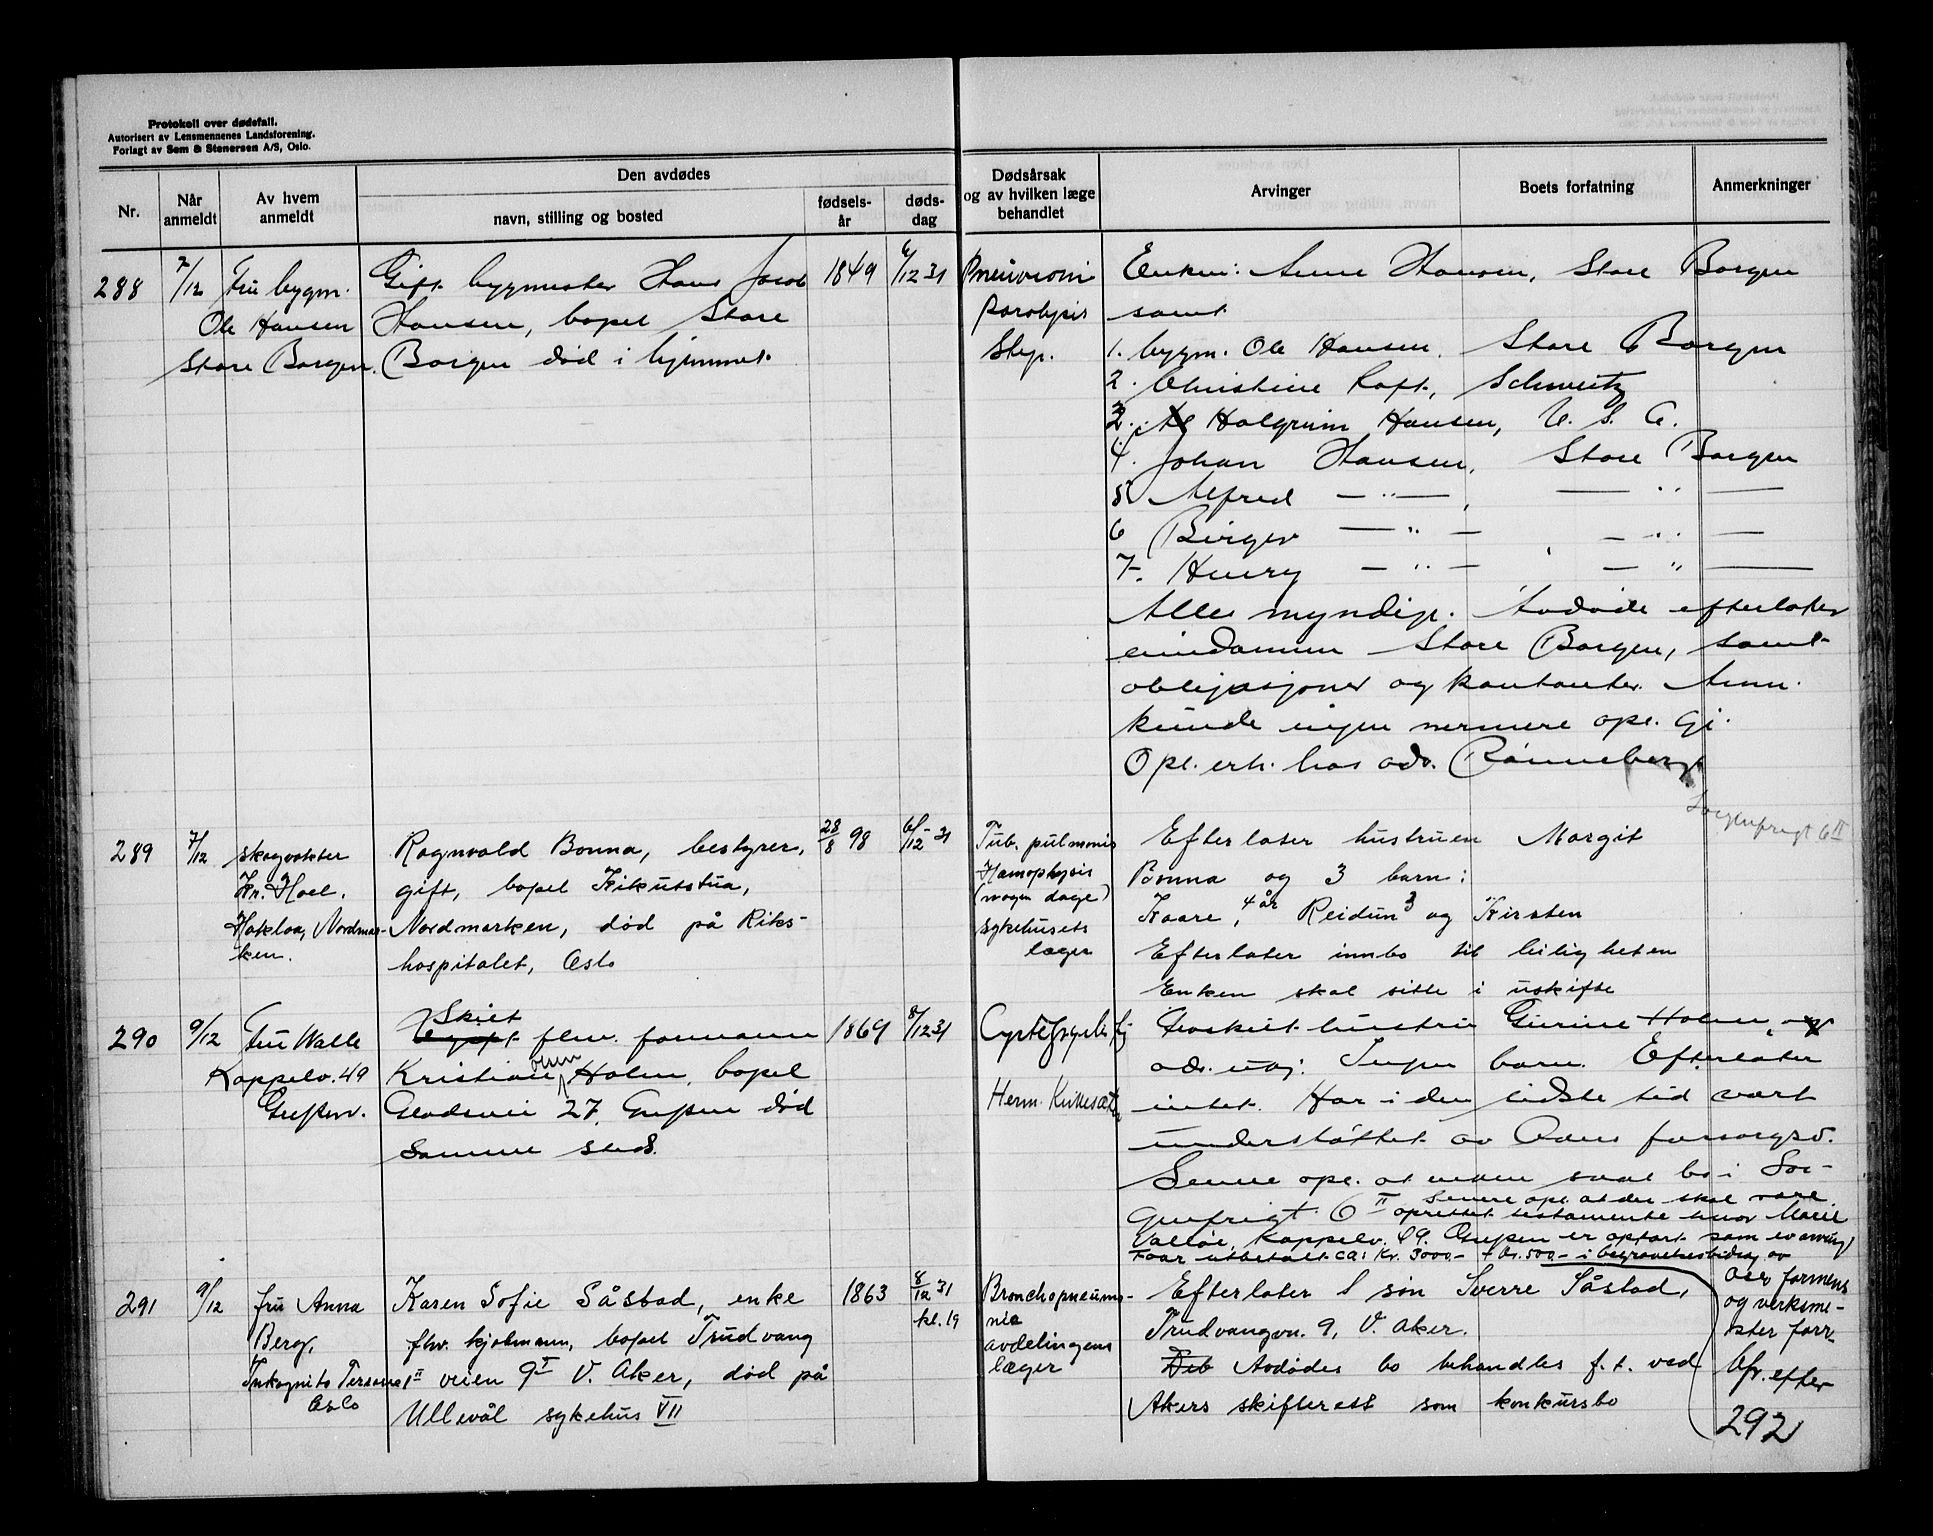 Protokoll over dødsfall.
Autorisert av Lensmennenes Landsforening.
Forlagt av Sem & Stenersen A/S, Oslo.
Nr.
Når anmeldt
Av hvem anmeldt
Den avdødes
navn, stilling og bosted
fødsels-år
døds-dag
Dødsårsak og av hvilken læge behandlet
Arvinger
Boets forfatning
Anmerkninger
288
7/12
Fru bygm.
Ole Hansen
Store Borgen.
Gift bygmester Hans Jacob
Hansen, bopel Store
Borgen død i hjemmet.
1849
6/12 31
Pneuvconi
paralysis
Step.
Enken: Anne Hansen, Store Borgen
samt
1. bygm. Ole Hansen. Store Borgen
2. Christine Loft, Schweitz
3. Halgrim Hansen, U. S. A.
4. Johan Hansen, Store Borgen
5 Alfred — " — , — " —
6 Birger — " — — " —
7. Henry — " — — " —
Alle myndige. Avdøde efterlater
eiendommen Store Borgen, samt
obligasjoner og kontanter. Anm.
kunde ingen nermere opl. gi.
Opl. erh. hos adv. Rønneberg
289
7/12
skogvokter
Kr. Hoel.
Hakloa, Nordmar-
ken.
Ragnvald Bonna, bestyrer,
gift, bopel Kikutstua,
Nordmarken, død på Riks-
hospitalet, Oslo
28/8 98
6/12-31
Tub. pulmonis
Hæmophysis
(nogen dage)
sykehusets
læger
Efterlater hustruen Margit
Bonna og 3 barn:
Kaare, 4 år Reidun 3 og Kirsten
Efterlater innbo til leiligheten
Enken skal sitte i uskifte
Sorgenfrigt 6 II
290
9/12
Fru Walle
Kappelv. 49
Grefsen.
Skilt
fhv. formann
Kristian Holm, bopel
Gladsvei 27, Grefsen død
samme sted.
1869
8/12 31
Herm.
Fraskilt hustru Gurine Holm, og
adr. uoj: Ingen barn. Efterlater
intet. Har i den sidste tid vært
understøttet av Oslo forsorgsv.
Senere opl. at enken skal bo i Sor-
genfrigt 6 II Senere opl. at der skal være
oprettet testamente hvor Marie
Valløe, Kappelv. 49. Grefsen er opført som enearving
Foar utbetalt ca: kr. 3000.- + kr. 500.- i begravelsesbidrag av
Oslo formens
og verksme-
ster forr.
Cfr. efter
292
291
9/12
fru Anna
Berg,
Inkognito Terrasse 1 II
Oslo
Karen Sofie Såstad, enke
fhv. kjølmann, bopel Trudvang
veien 9 I V. Aker, død på
Ullevål sykehus VII
1863
8/12 31
kl. 19
Bronchopneumo-
nie
avdelingens
læger
Efterlater 1 søn Sverre Såstad,
Trudvangvn. 9, V. Aker.
Avdødes bo behandles f. t. ved
Akers skifterett som konkursbo